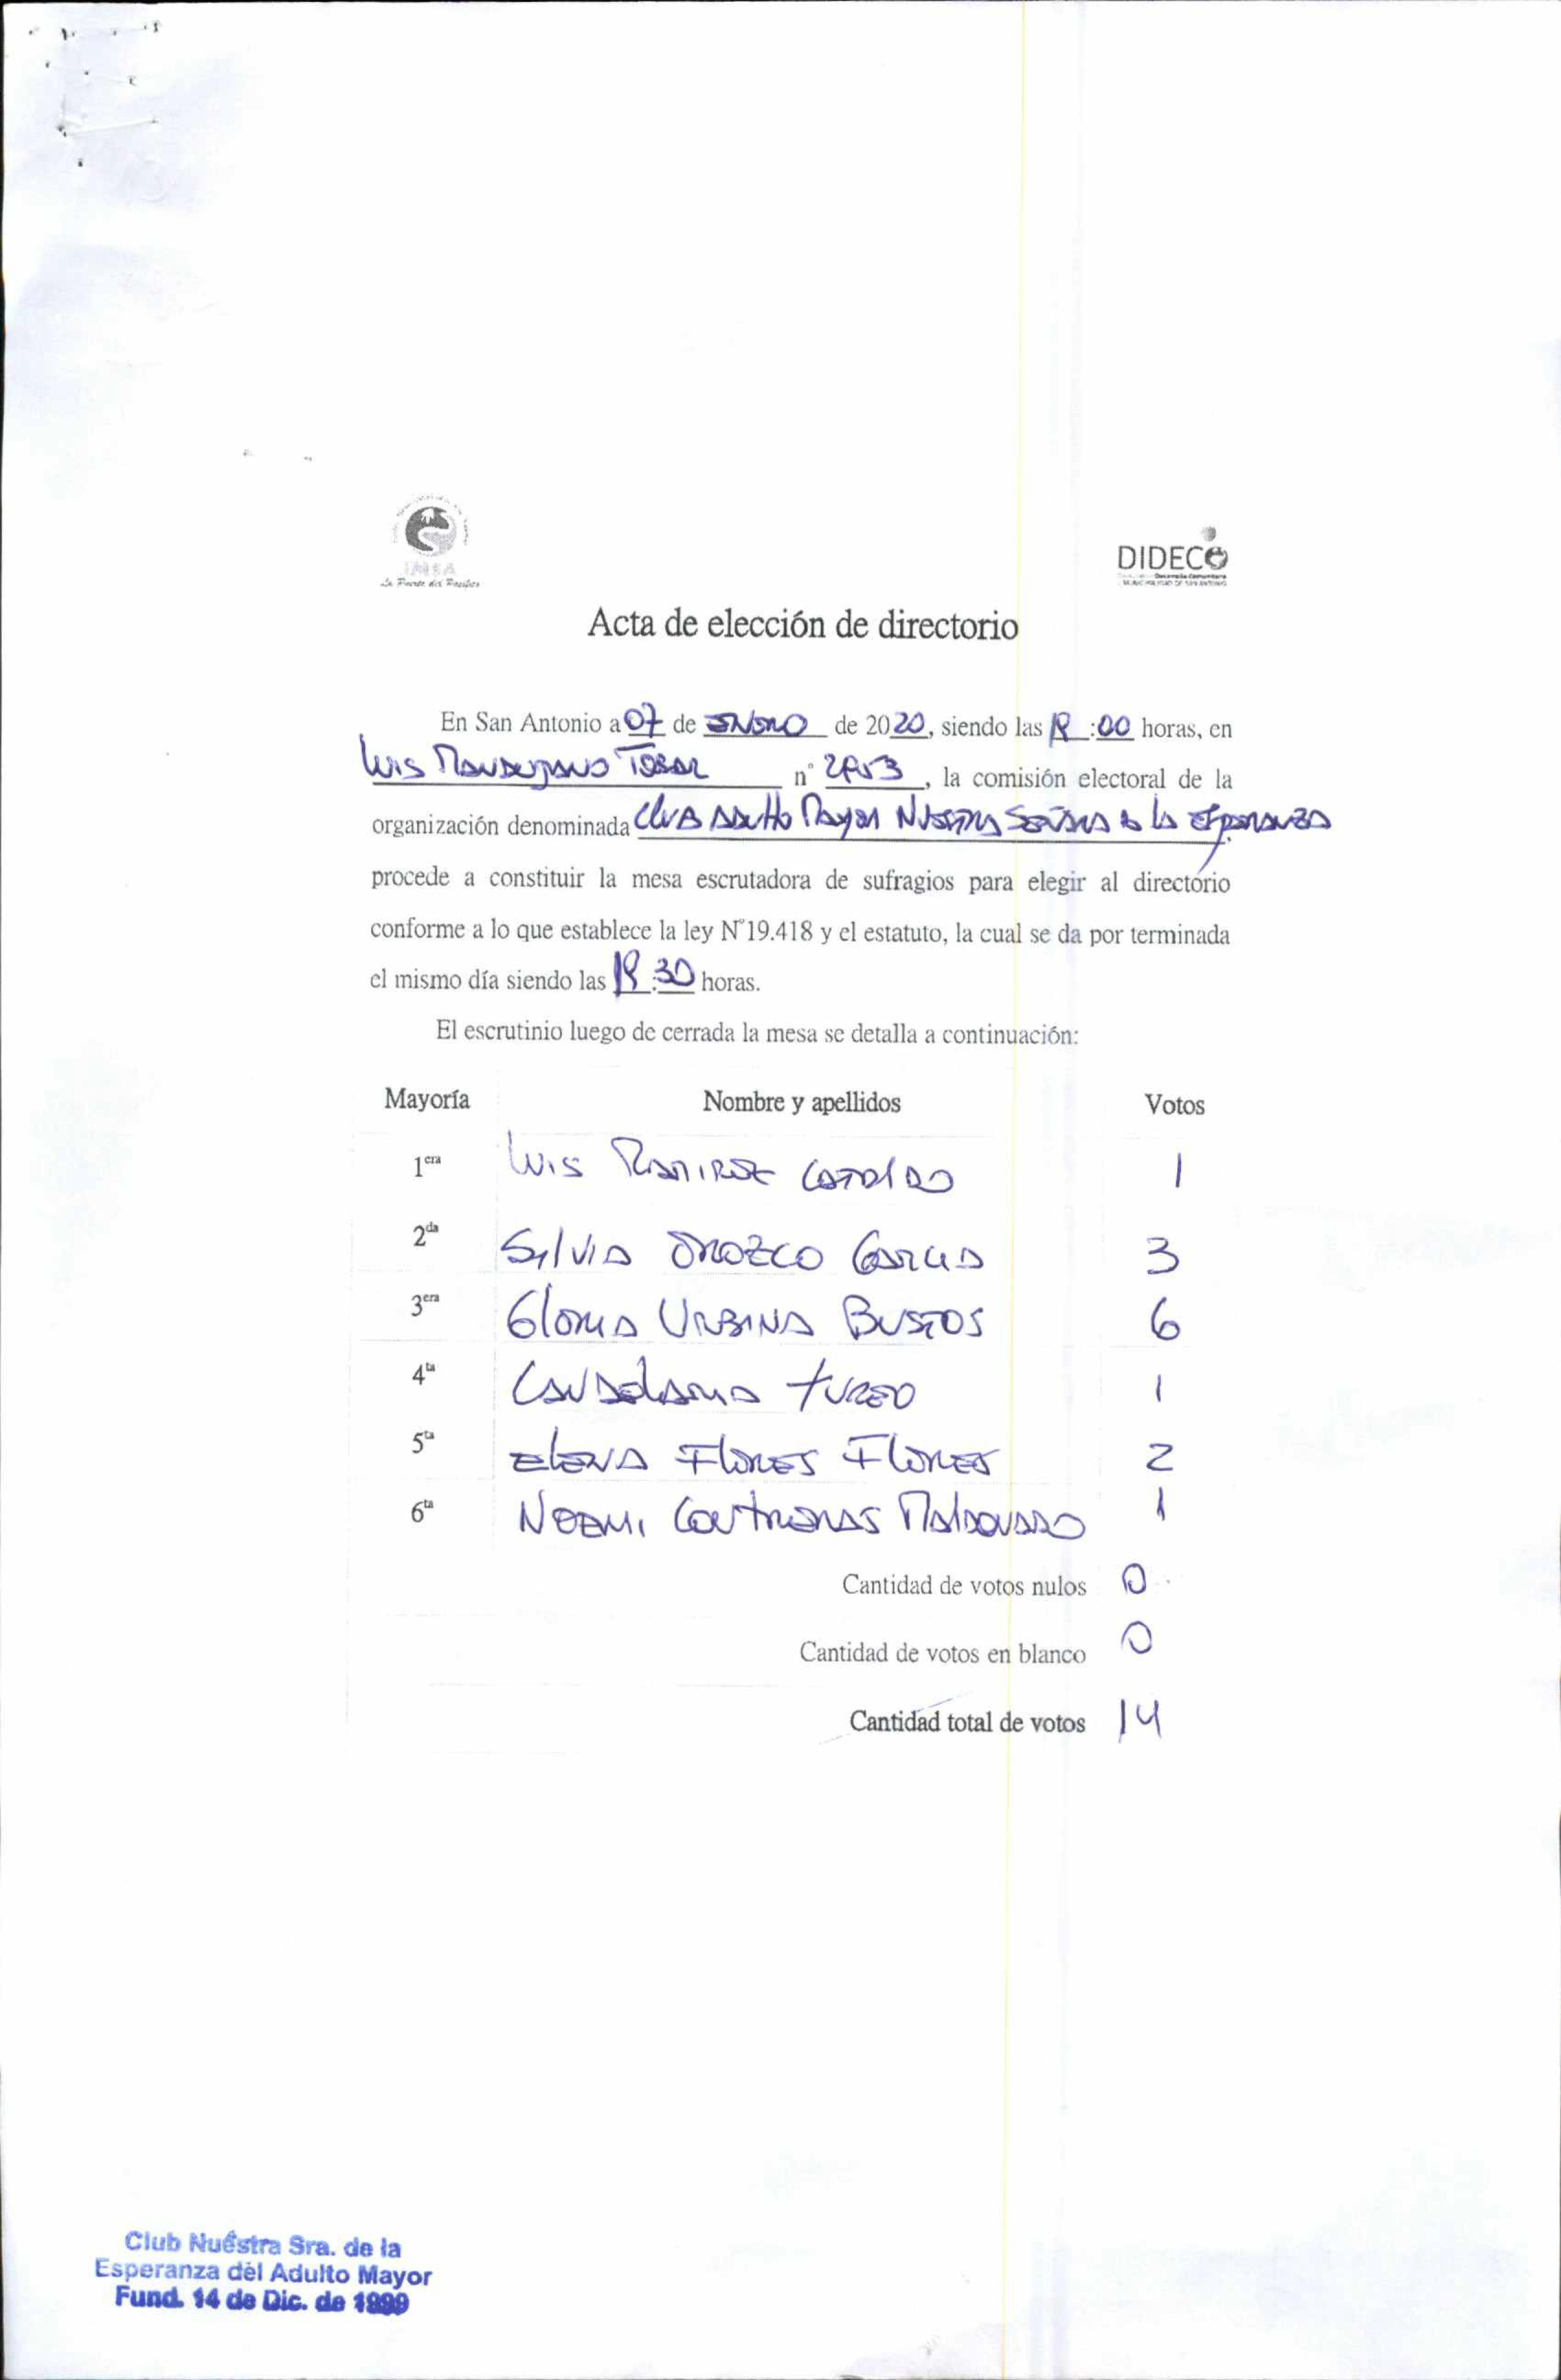 IMSA
La Puerta del Pacífico
DIDECO
Desarrollo Comunitario
MUNICIPALIDAD DE SAN ANTONIO
Acta de elección de directorio
En San Antonio a 07 de ENERO de 2020, siendo las :00 horas, en
Luis n° , la comisión electoral de la
organización denominada Club Adulto Mayor Nuestra Señora de la Esperanza
procede a constituir la mesa escrutadora de sufragios para elegir al directorio
conforme a lo que establece la ley N°19.418 y el estatuto, la cual se da por terminada
el mismo día siendo las :30 horas.
El escrutinio luego de cerrada la mesa se detalla a continuación:
Mayoría Nombre y apellidos Votos
1era Luis Ramirez 1
2da Silvia Orozco Garcia 3
3era Gloria Urbina Bustos 6
4ta Candelaria 1
5ta Elena Flores Flores 2
6ta Noemi Contreras Maldonado 1
Cantidad de votos nulos 0
Cantidad de votos en blanco 0
Cantidad total de votos 14
Club Nuestra Sra. de la
Esperanza del Adulto Mayor
Fund. 14 de Dic. de 1999